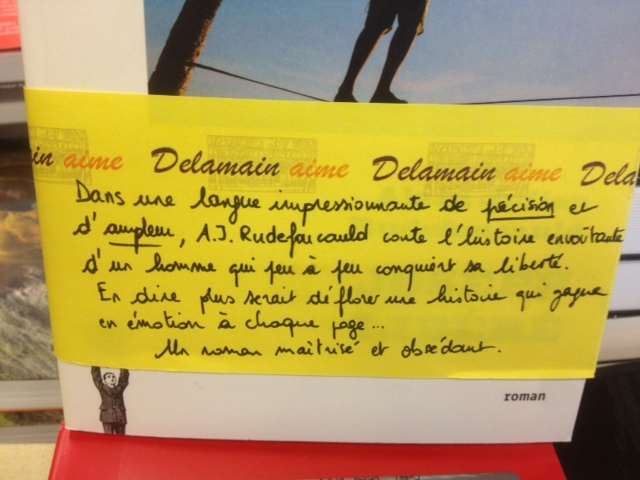 in aime Delamain aime Delamain aime Dela
Dans une langue impressionnante de précision et
d'ampleur, A.J. Rudefoucauld conte l'histoire envoûtante
d'un homme qui peu à peu conquiert sa liberté.
En dire plus serait déflorer une histoire qui gagne
en émotion à chaque page...
Un roman maîtrisé et obsédant.
roman